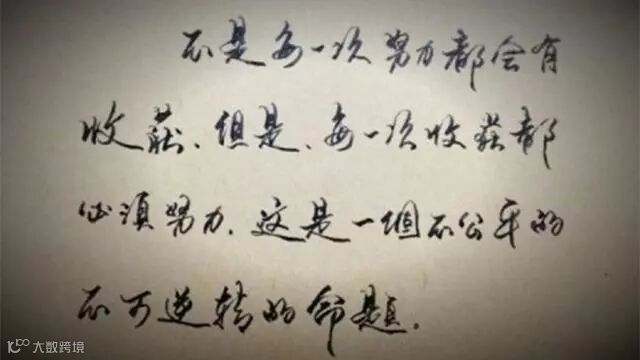 不是每一次努力都会有
收获、但是、每一次收获都
必须努力.这是一個不公平的
不可逆转的命题.
大数跨境